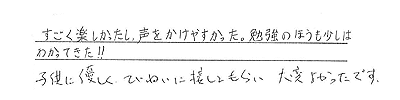 すごく楽しかったし、声をかけやすかった。勉強のほうも少しは
わかってきた!!
子供に優しく、ていねいに接してもらい 大変よかったです。